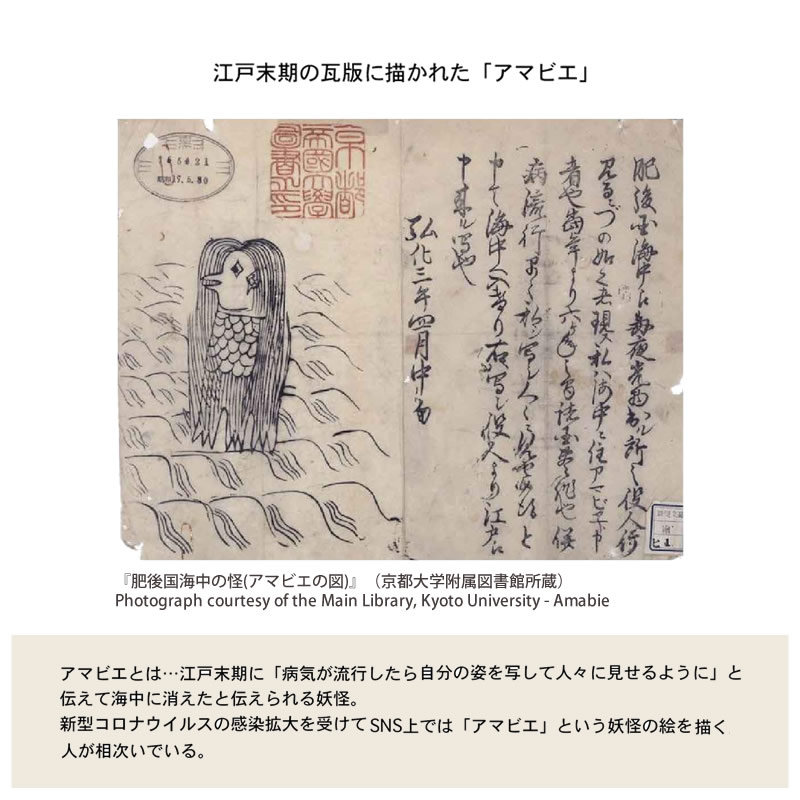 江戸末期の瓦版に描かれた「アマビエ」
京都
帝國大學
圖書之印
肥後国海中え毎夜光物出ル所之役人行
見るニづの如く者現ス私ハ海中ニ住アマビヱト申
者也当年より六ヶ年之間諸国豊作也併
病流行早々私シ写シ人々ニ見せ候得と
申て海中へ入けり右写シ役人より江戸え
申来ル写也
弘化三年四月中旬
『肥後国海中の怪(アマビエの図)』（京都大学附属図書館所蔵）
Photograph courtesy of the Main Library, Kyoto University - Amabie
アマビエとは…江戸末期に「病気が流行したら自分の姿を写して人々に見せるように」と
伝えて海中に消えたと伝えられる妖怪。
新型コロナウイルスの感染拡大を受けてSNS上では「アマビエ」という妖怪の絵を描く
人が相次いでいる。